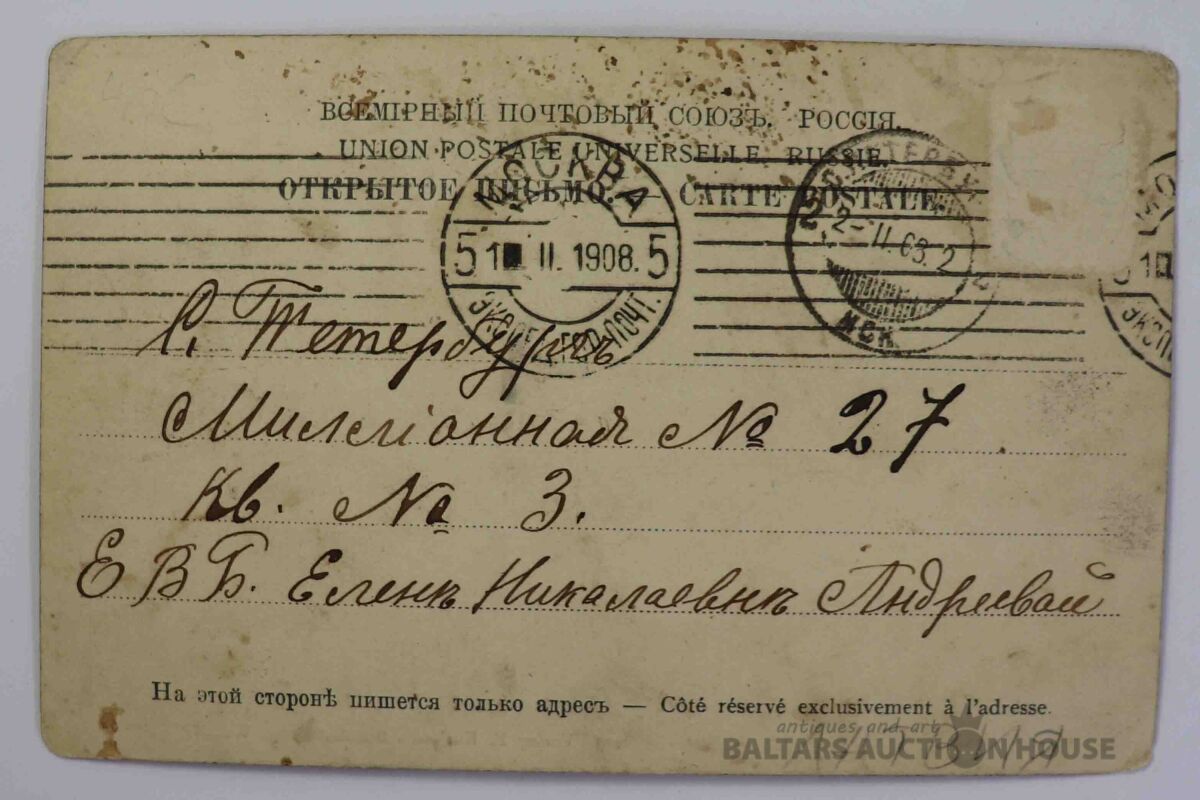 ВСЕМІРНЫЙ ПОЧТОВЫЙ СОЮЗЪ. РОССІЯ.
UNION POSTALE UNIVERSELLE. RUSSIE.
ОТКРЫТОЕ ПИСЬМО. — CARTE POSTALE.
МОСКВА
5 1 II. 1908. 5
2-II.08.2
МСК
С. Петербургъ
Миллiонная № 27
кв. № 3.
Е В Б. Еленѣ Николаевнѣ Андреевой
На этой сторонѣ пишется только адресъ — Côté réservé exclusivement à l'adresse.
antiques and art
BALTARS AUCTION HOUSE